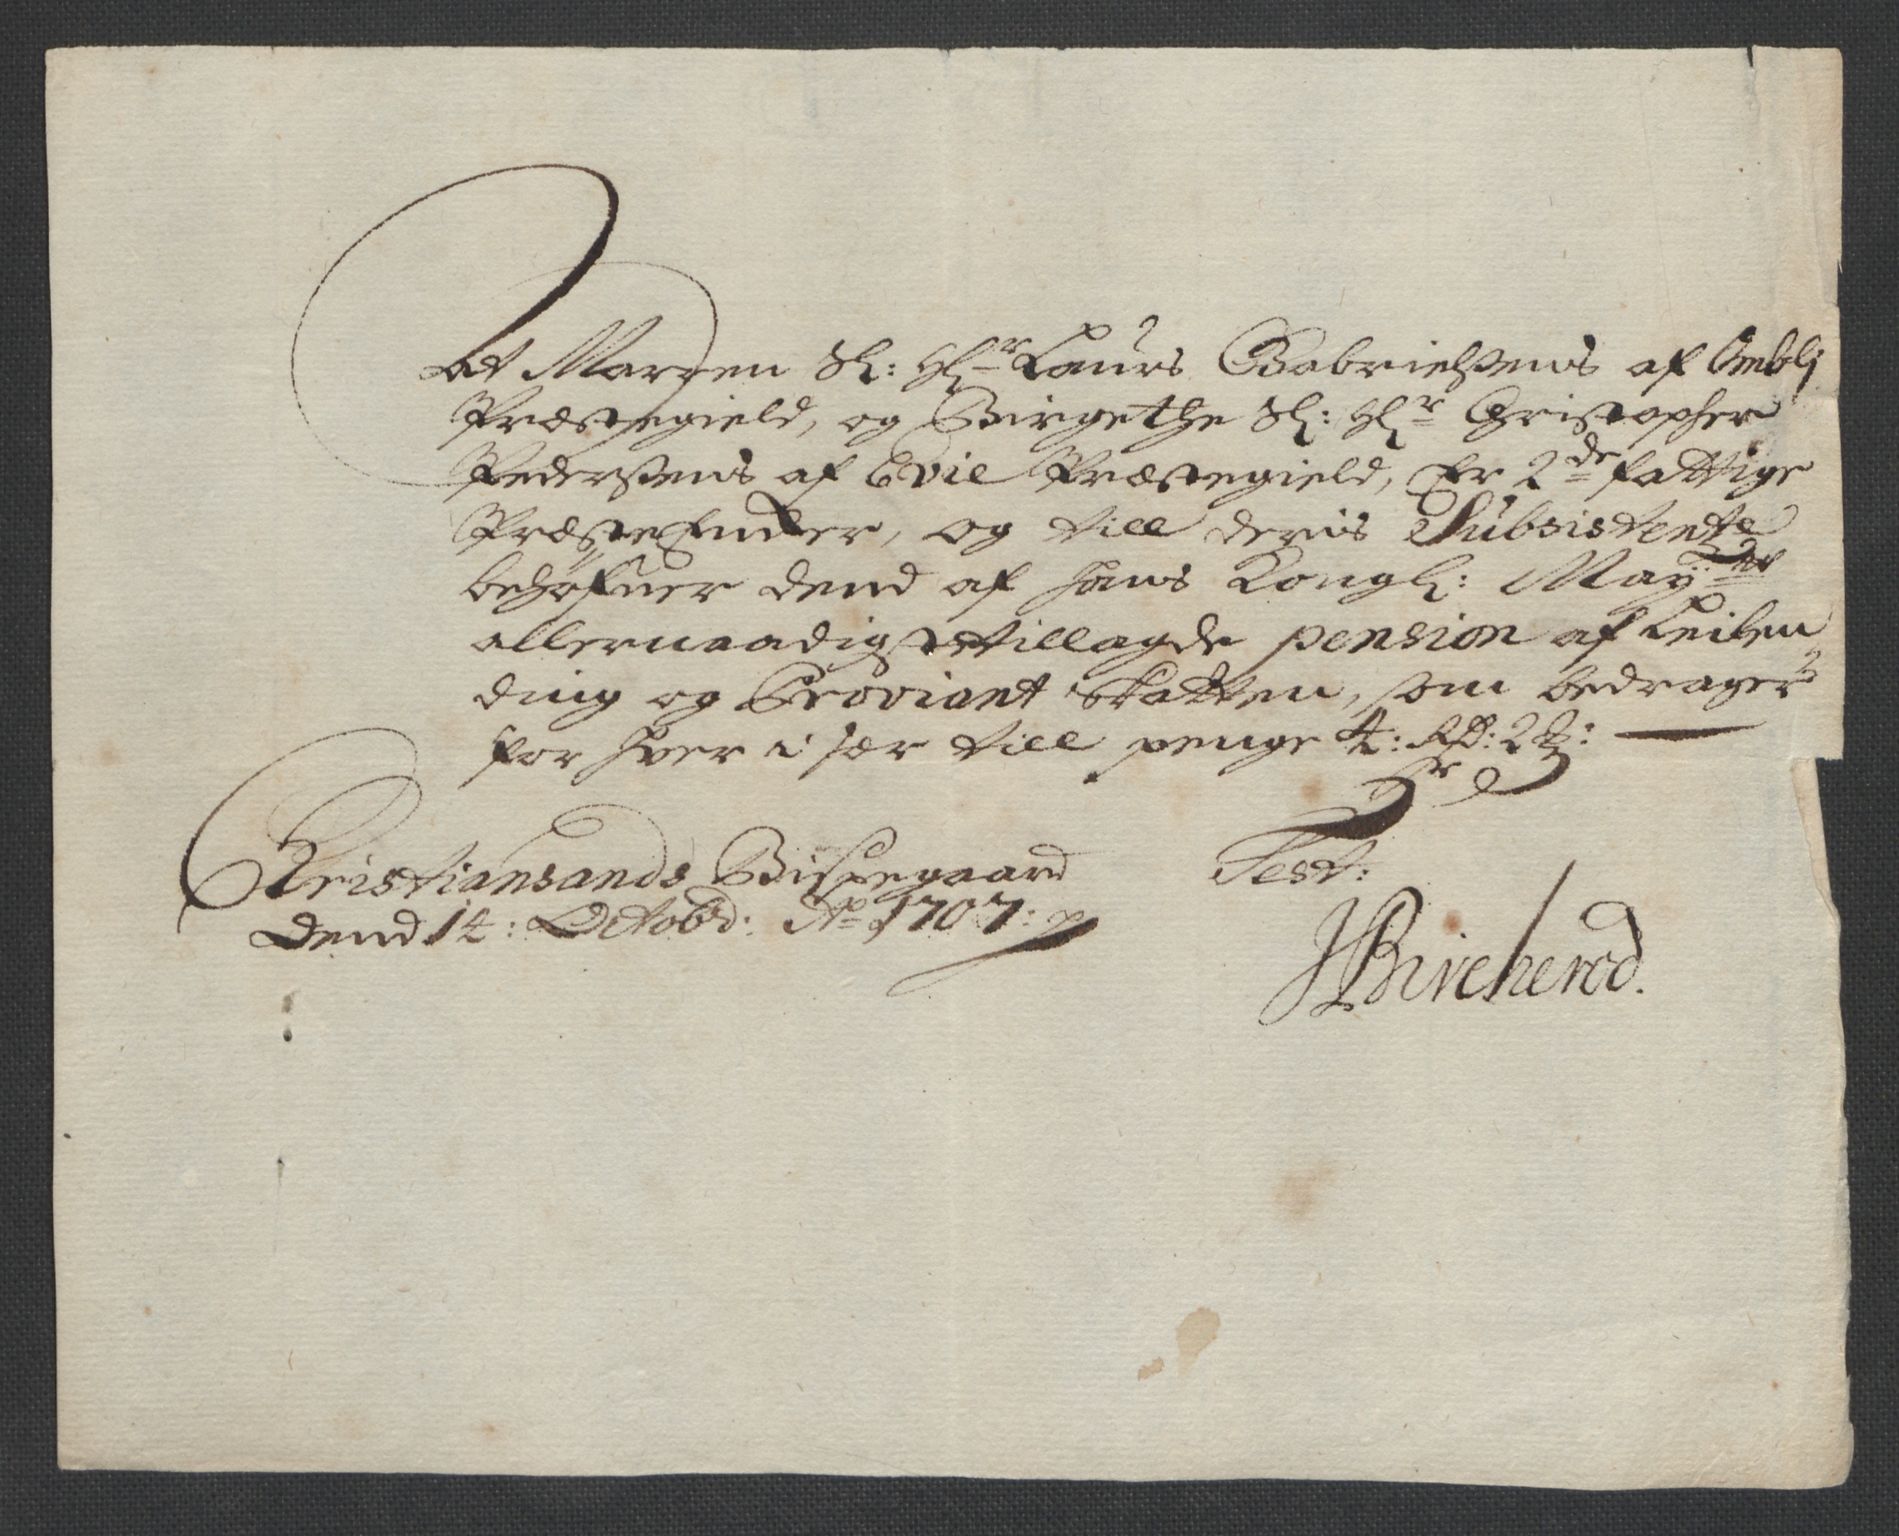 At Marren Sl: Hr Laurs Gabrielsens af Omblj
Præstegield, og Birgethe Sl: Hr Christopher
Pedersens af Evie Præstegield, Er 2de fattige
Præste Encker, og till deris Subsistente
behøfuer dend af Hans Kongl: Mayts
allernaadigst tillagde pension af Leilen
ding og Proviant Skatten, som bedrager
for hver i sær till penge 4: Rd: 2 ß:
Christiansands Bispegaard
Dend 14: Octobr: Ao 1707:
Test:
JBircherod.